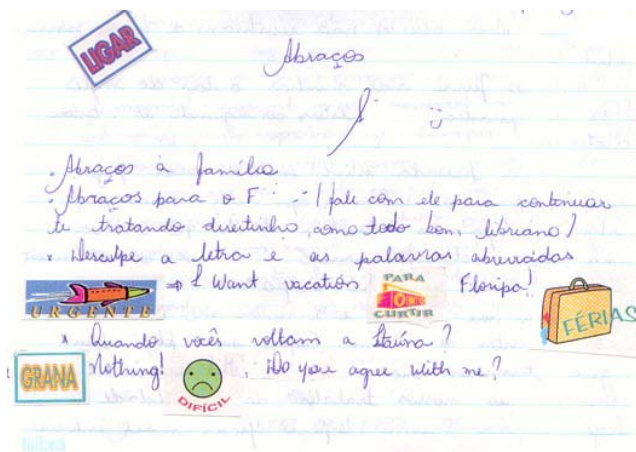 LIGAR
Abraços
:)
. Abraços à família
. Abraços para o F (fale com ele para continuar
te tratando direitinho, como todo bom libriano)
* Desculpe a letra e as palavras abreviadas
URGENTE ⇒ I Want vacation PARA CURTIR Floripa! FÉRIAS
* Quando vocês voltam a Itaúna?
GRANA Nothing! DIFÍCIL. Do you agree with me?
tilibra